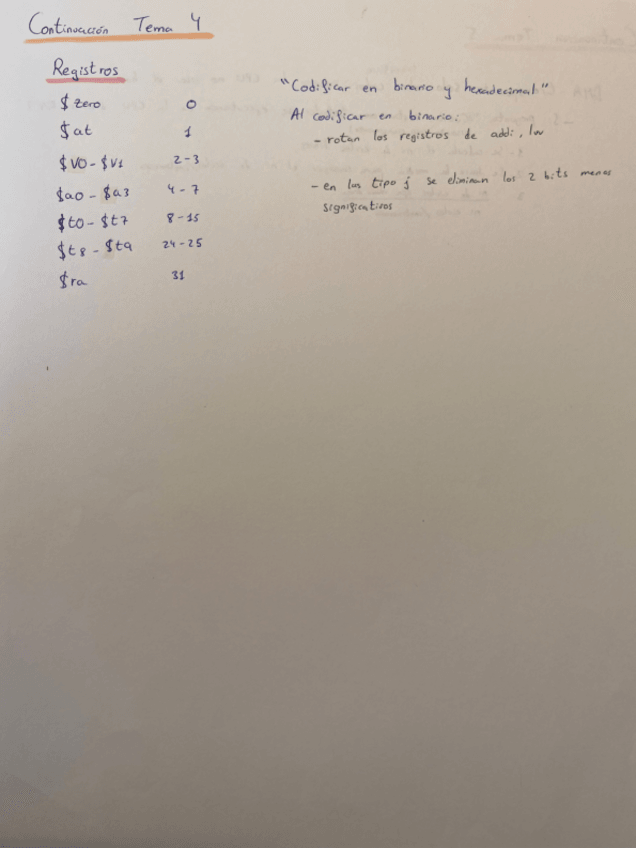 Continuación Tema 4
Registros
$zero 0
$at 1
$v0 - $v1 2-3
$a0 - $a3 4-7
$t0 - $t7 8-15
$t8 - $t9 24-25
$ra 31
"Codificar en binario y hexadecimal"
Al codificar en binario:
- rotan los registros de addi, lw
- en las tipo j se eliminan los 2 bits menos
significativos